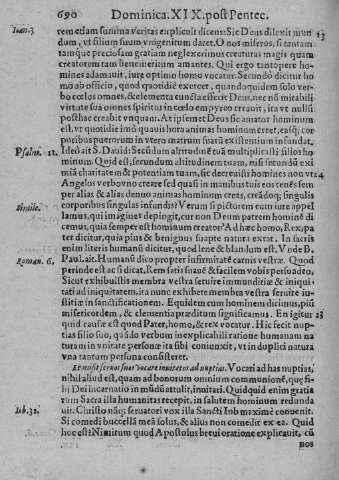 690 Dominica. XIX. post Pentec.
Ioan. 3 rem etiam summa veritas explicuit dicens: Sic Deus dilexit mun 23
dum, vt filium suum vnigenitum daret. O nos miseros, si tantam
tamque preciosam gratiam neglexerimus creaturas magis quam
creatorem tam beneficentium amantes. Qui ergo tantopere ho-
mines adamauit, iure optimo homo vocatur. Secundò dicitur ho
mo ab officio, quod quotidie exercet, quandoquidem solo ver-
bo cœlos omnes, & elementa cuncta effecit Deus, nec nõ mirabili
virtute sua omnes spiritus in cœlo empyreo creauit, ita vt nullũ
posthac creabit vnquam. At ipsemet Deus sic amator hominum
est, vt quotidie imò quauis hora animas hominum creet, easq; cor
poribus puerorum in vtero matrum suarũ existentium infundat,
Psalm. 11. Ideò ait S. Dauid: Secundum altitudinem tuã multiplicasti filios ho
minum. Quid est, secundum altitudinem tuam, nisi secundũ exi
miã charitatem & potentiam tuam, sic decreuisti homines non vt 24
Angelos verbo uno creare sed quasi in manibus tuis eos tenẽs sem
per alias & alias denuo animas hominum creas, creádoq; singulis
Simile. corporibus singulas infundis? Verum si pictorem eum iure appel
lamus, qui imagines depingit, cur non Deum patrem hominẽ di
cemus, quia semper est hominum creator? Ad hæc homo, Rex, pa
ter dicitur, quia pius & benignus suapte natura extat. In sacris
enim literis humanũ dicitur, quod lene & blandum est. Vnde B.
Roman. 6. Paul. ait. Humanũ dico propter infirmitatẽ carnis vestræ. Quod
perinde est ac si dicat, Rem satis suauẽ & facilem vobis persuadeo,
Sicut exhibuistis membra vestra seruire immunditiæ & iniqui-
tati ad iniquitatem, ita nunc exhibere membra vestra seruire iu-
stitiæ in sanctificationem. Equidem cum hominem dicimus, piũ
misericordem, & clementia præditum significamus. En igitur 25
quid causæ est quod Pater, homo, & rex vocatur. Hic fecit nup-
tias filio suo, quãdo verbum inexplicabili ratione humanam na
turam in vnitate personæ ita sibi coniunxit, vt in duplici natura
vna tantum persona consisteret.
Et misit seruos suos vocare inuitatos ad nuptias. Vocari ad has nuptias,
nihil aliud est, quam ad bonorum omnium communionẽ, quę fi-
lij Dei incarnatio in mũdũ attulit, inuitari. Quidquid enim gratia
rum Sacra illa humanitas recepit, in salutem hominum redunda
Iob. 31. uit. Christo nãq; seruatori vox illa Sancti Iob maximè conuenit.
Si comedi buccellã meã solus, & alius non comedit ex ea. Quid
hoc est? Nimirum quod Apostolus breui oratione explicauit, cũ
nos